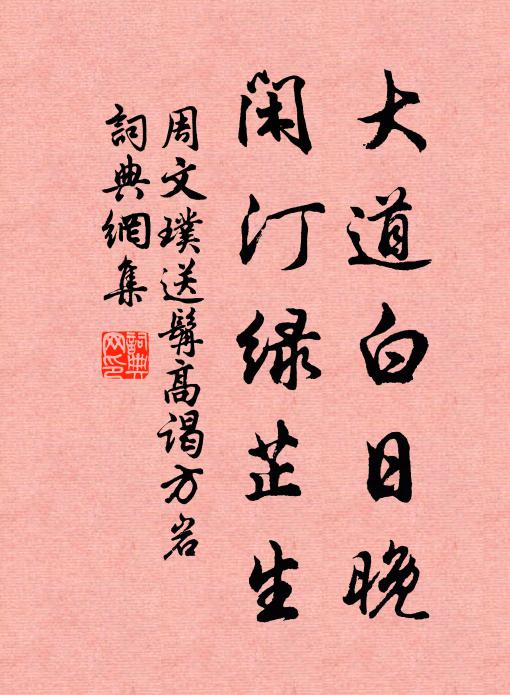 大道白日晚
闲汀绿芷生
周文璞送髯高谒方岩
詞典網集
詞典網印